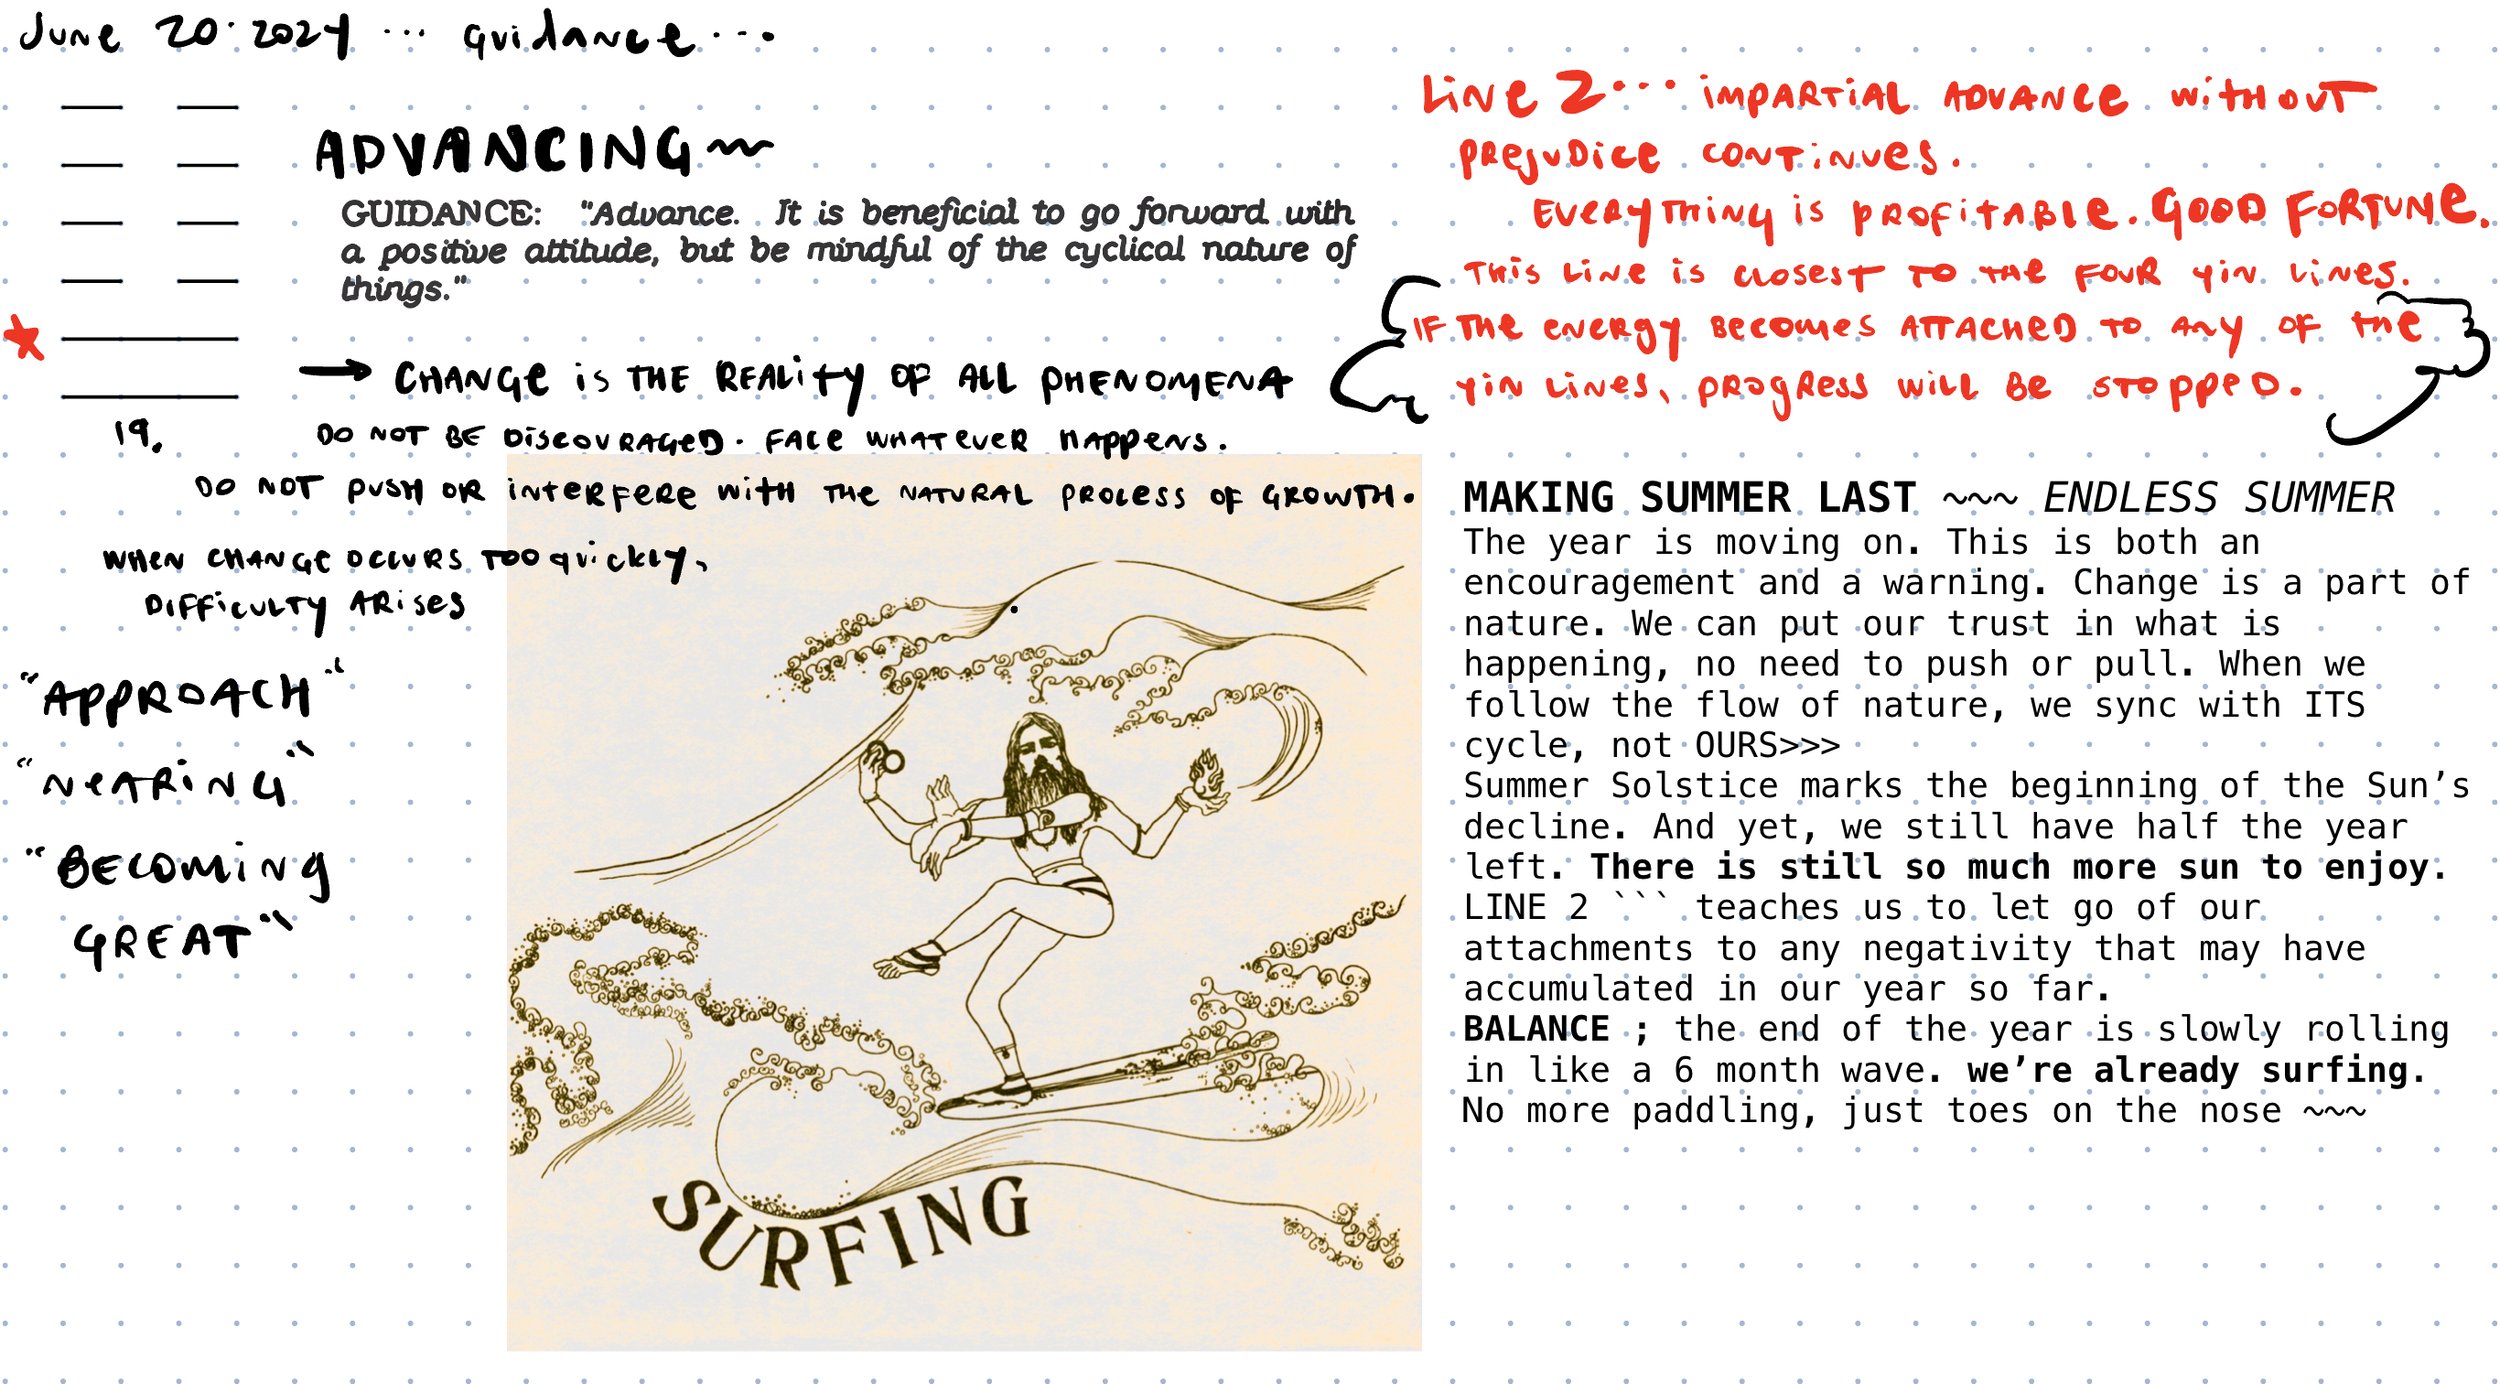 June 20·2024 ... guidance...
ADVANCING~
GUIDANCE: "Advance. It is beneficial to go forward with
a positive attitude, but be mindful of the cyclical nature of
things."
→ CHANGE is THE REALity OF ALL PHENOMENA
19.
DO NOT BE DiscouRAGED. FACE WHATEVER HAPPENS.
DO NOT PUSH OR INTERFERE WITH THE NATURAL PROCESS OF GROWTH.
WHEN CHANGE OCCURS TOO quickly,
DIFFICULTY ARISES
"APPROACH"
"NEARING"
"BECOMING
GREAT"
LINE 2... IMPARTIAL ADVANCE WITHOUT
PREJUDICE CONTINUES.
EVERYTHING is PROFITABLE. GOOD FORTUNE.
THIS LINE IS CLOSEST TO THE FOUR yin LINES.
IF THE ENERGY BECOMES ATTACHED TO ANY OF THE
yin LINES, PROGRESS WILL BE STOPPED.
MAKING SUMMER LAST ~~~ ENDLESS SUMMER
The year is moving on. This is both an
encouragement and a warning. Change is a part of
nature. We can put our trust in what is
happening, no need to push or pull. When we
follow the flow of nature, we sync with ITS
cycle, not OURS>>>
Summer Solstice marks the beginning of the Sun’s
decline. And yet, we still have half the year
left. There is still so much more sun to enjoy.
LINE 2 ``` teaches us to let go of our
attachments to any negativity that may have
accumulated in our year so far.
BALANCE ; the end of the year is slowly rolling
in like a 6 month wave. we’re already surfing.
No more paddling, just toes on the nose ~~~
SURFING